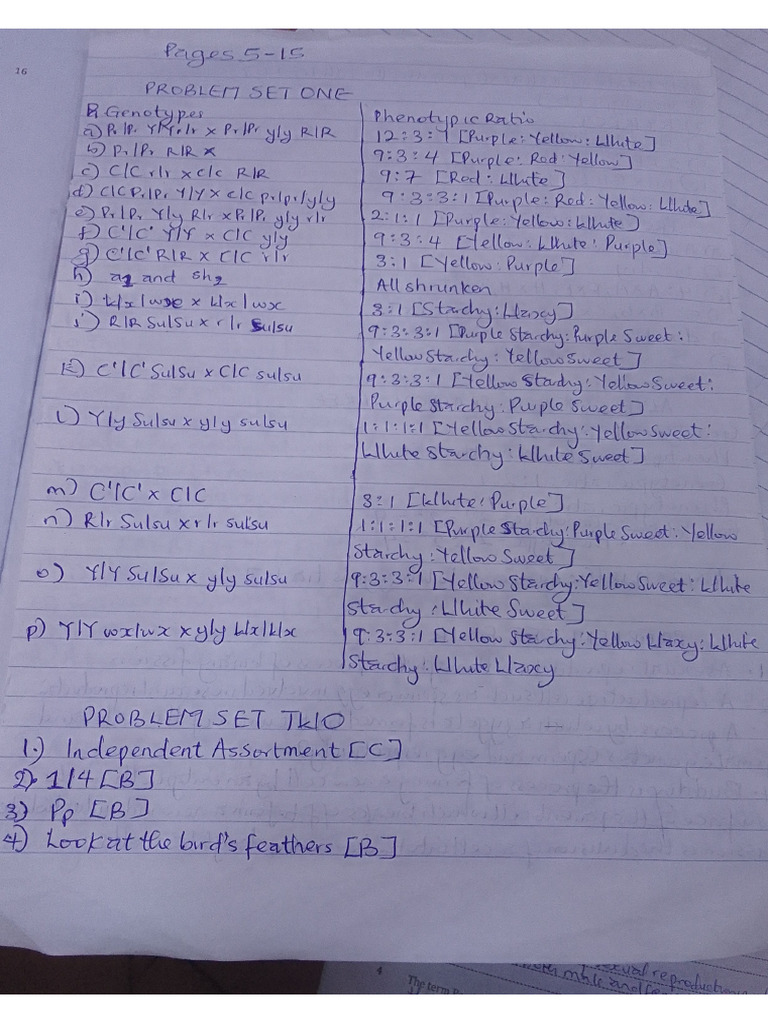 16
Pages 5-15
PROBLEM SET ONE
Genotypes Phenotypic Ratio
a) Pr/Pr Y/Y r/r x Pr/Pr y/y R/R 12:3:1 [Purple: Yellow: White]
b) Pr/Pr R/R x 9:3:4 [Purple: Red: Yellow]
c) C/C r/r x c/c R/R 9:7 [Red: White]
d) C/C Pr/Pr Y/Y x c/c pr/pr/y/y 9:3:3:1 [Purple: Red: Yellow: White]
e) Pr/Pr Y/y R/r x Pr/Pr y/y r/r 2:1:1 [Purple: Yellow: White]
f) C'/C' Y/Y x C/C y/y 9:3:4 [Yellow: White: Purple]
g) C'/C' R/R x C/C r/r 3:1 [Yellow: Purple]
h) a2 and sh2 All shrunken
i) Wx/wx x Wx/wx 3:1 [Starchy: Waxy]
j) R/R Su/Su x r/r su/su 9:3:3:1 [Purple Starchy: Purple Sweet:
Yellow Starchy: Yellow Sweet]
K) C'/C' Su/Su x C/C su/su 9:3:3:1 [Yellow Starchy: Yellow Sweet:
Purple Starchy: Purple Sweet]
l) Y/y Su/su x y/y su/su 1:1:1:1 [Yellow Starchy: Yellow Sweet:
White Starchy: White Sweet]
m) C'/C' x C/C 3:1 [White: Purple]
n) R/r Su/su x r/r su/su 1:1:1:1 [Purple Starchy: Purple Sweet: Yellow
Starchy: Yellow Sweet]
o) Y/Y Su/Su x y/y su/su 9:3:3:1 [Yellow Starchy: Yellow Sweet: White
Starchy: White Sweet]
p) Y/Y wx/wx x y/y Wx/Wx 9:3:3:1 [Yellow Starchy: Yellow Waxy: White
Starchy: White Waxy
PROBLEM SET TWO
1.) Independent Assortment [C]
2) 1/4 [B]
3) Pp [B]
4) Look at the bird's feathers [B]
4
The term